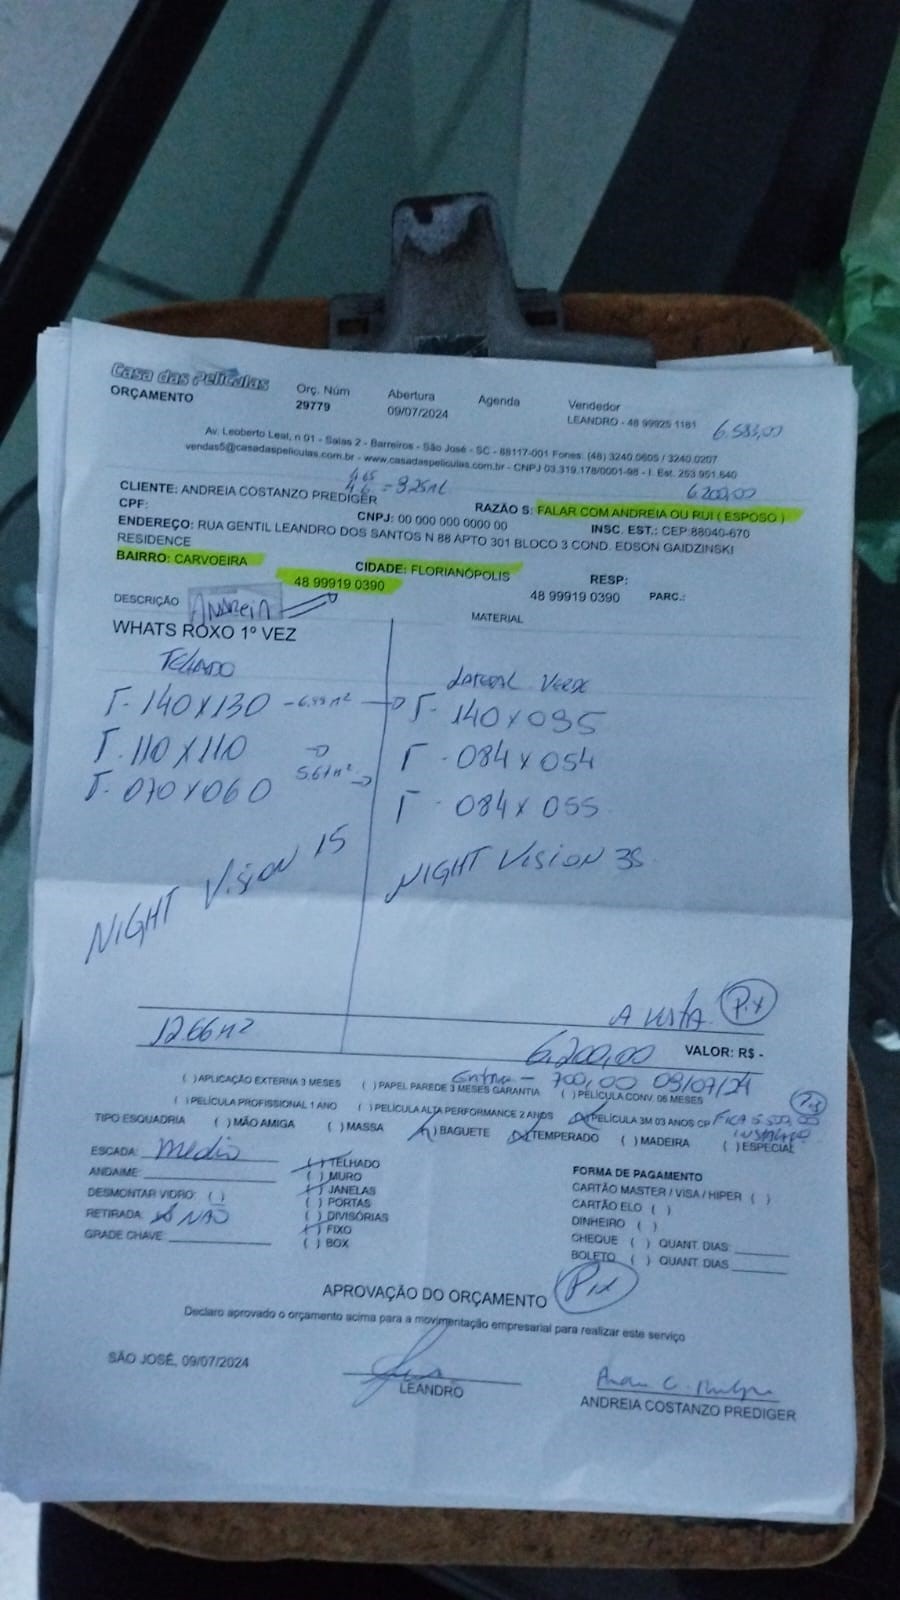 Casa das Películas
ORÇAMENTO
Orç. Núm
29779
Abertura
09/07/2024
Agenda
Vendedor
LEANDRO - 48 99925 1181
6.583,00
Av. Leoberto Leal, n 01 - Salas 2 - Barreiros - São José - SC - 88117-001 Fones: (48) 3240.0605 / 3240.0207
vendas5@casadaspeliculas.com.br - www.casadaspeliculas.com.br - CNPJ 03.319.178/0001-98 - I. Est. 253.951.640
6.200,00
CLIENTE: ANDREIA COSTANZO PREDIGER
RAZÃO S: FALAR COM ANDREIA OU RUI ( ESPOSO )
CPF:
CNPJ: 00 000 000 0000 00
INSC. EST.: CEP:88040-670
ENDEREÇO: RUA GENTIL LEANDRO DOS SANTOS N 88 APTO 301 BLOCO 3 COND. EDSON GAIDZINSKI
RESIDENCE
BAIRRO: CARVOEIRA
CIDADE: FLORIANÓPOLIS
RESP:
48 99919 0390
48 99919 0390
PARC.:
DESCRIÇÃO
Andreia
MATERIAL
WHATS ROXO 1º VEZ
TELHADO
LATERAL VERDE
140X130
140X095
110X110
084X054
070X060
5.67m²
084X055
NIGHT VISION 15
NIGHT VISION 35
A VISTA PIX
12.66m²
6.200,00
VALOR: R$ -
Entrada - 700,00 09/07/24
( )APLICAÇÃO EXTERNA 3 MESES
( )PAPEL PAREDE 3 MESES GARANTIA
( )PELÍCULA CONV. 06 MESES
( )PELÍCULA PROFISSIONAL 1 ANO
( )PELÍCULA ALTA PERFORMANCE 2 ANOS
(X)PELÍCULA 3M 03 ANOS CP
FICA 5.500,00
INSTALADO
TIPO ESQUADRIA
( )MÃO AMIGA
( )MASSA
(X)BAGUETE
(X)TEMPERADO
( )MADEIRA
( )ESPECIAL
ESCADA: Medio
ANDAIME:
DESMONTAR VIDRO: ( )
RETIRADA: NÃO
GRADE CHAVE:
(X)TELHADO
( )MURO
(X)JANELAS
( )PORTAS
( )DIVISÓRIAS
(X)FIXO
( )BOX
FORMA DE PAGAMENTO
CARTÃO MASTER / VISA / HIPER ( )
CARTÃO ELO ( )
DINHEIRO ( )
CHEQUE ( ) QUANT. DIAS:
BOLETO ( ) QUANT. DIAS
PIX
APROVAÇÃO DO ORÇAMENTO
Declaro aprovado o orçamento acima para a movimentação empresarial para realizar este serviço
SÃO JOSÉ, 09/07/2024
LEANDRO
ANDREIA COSTANZO PREDIGER